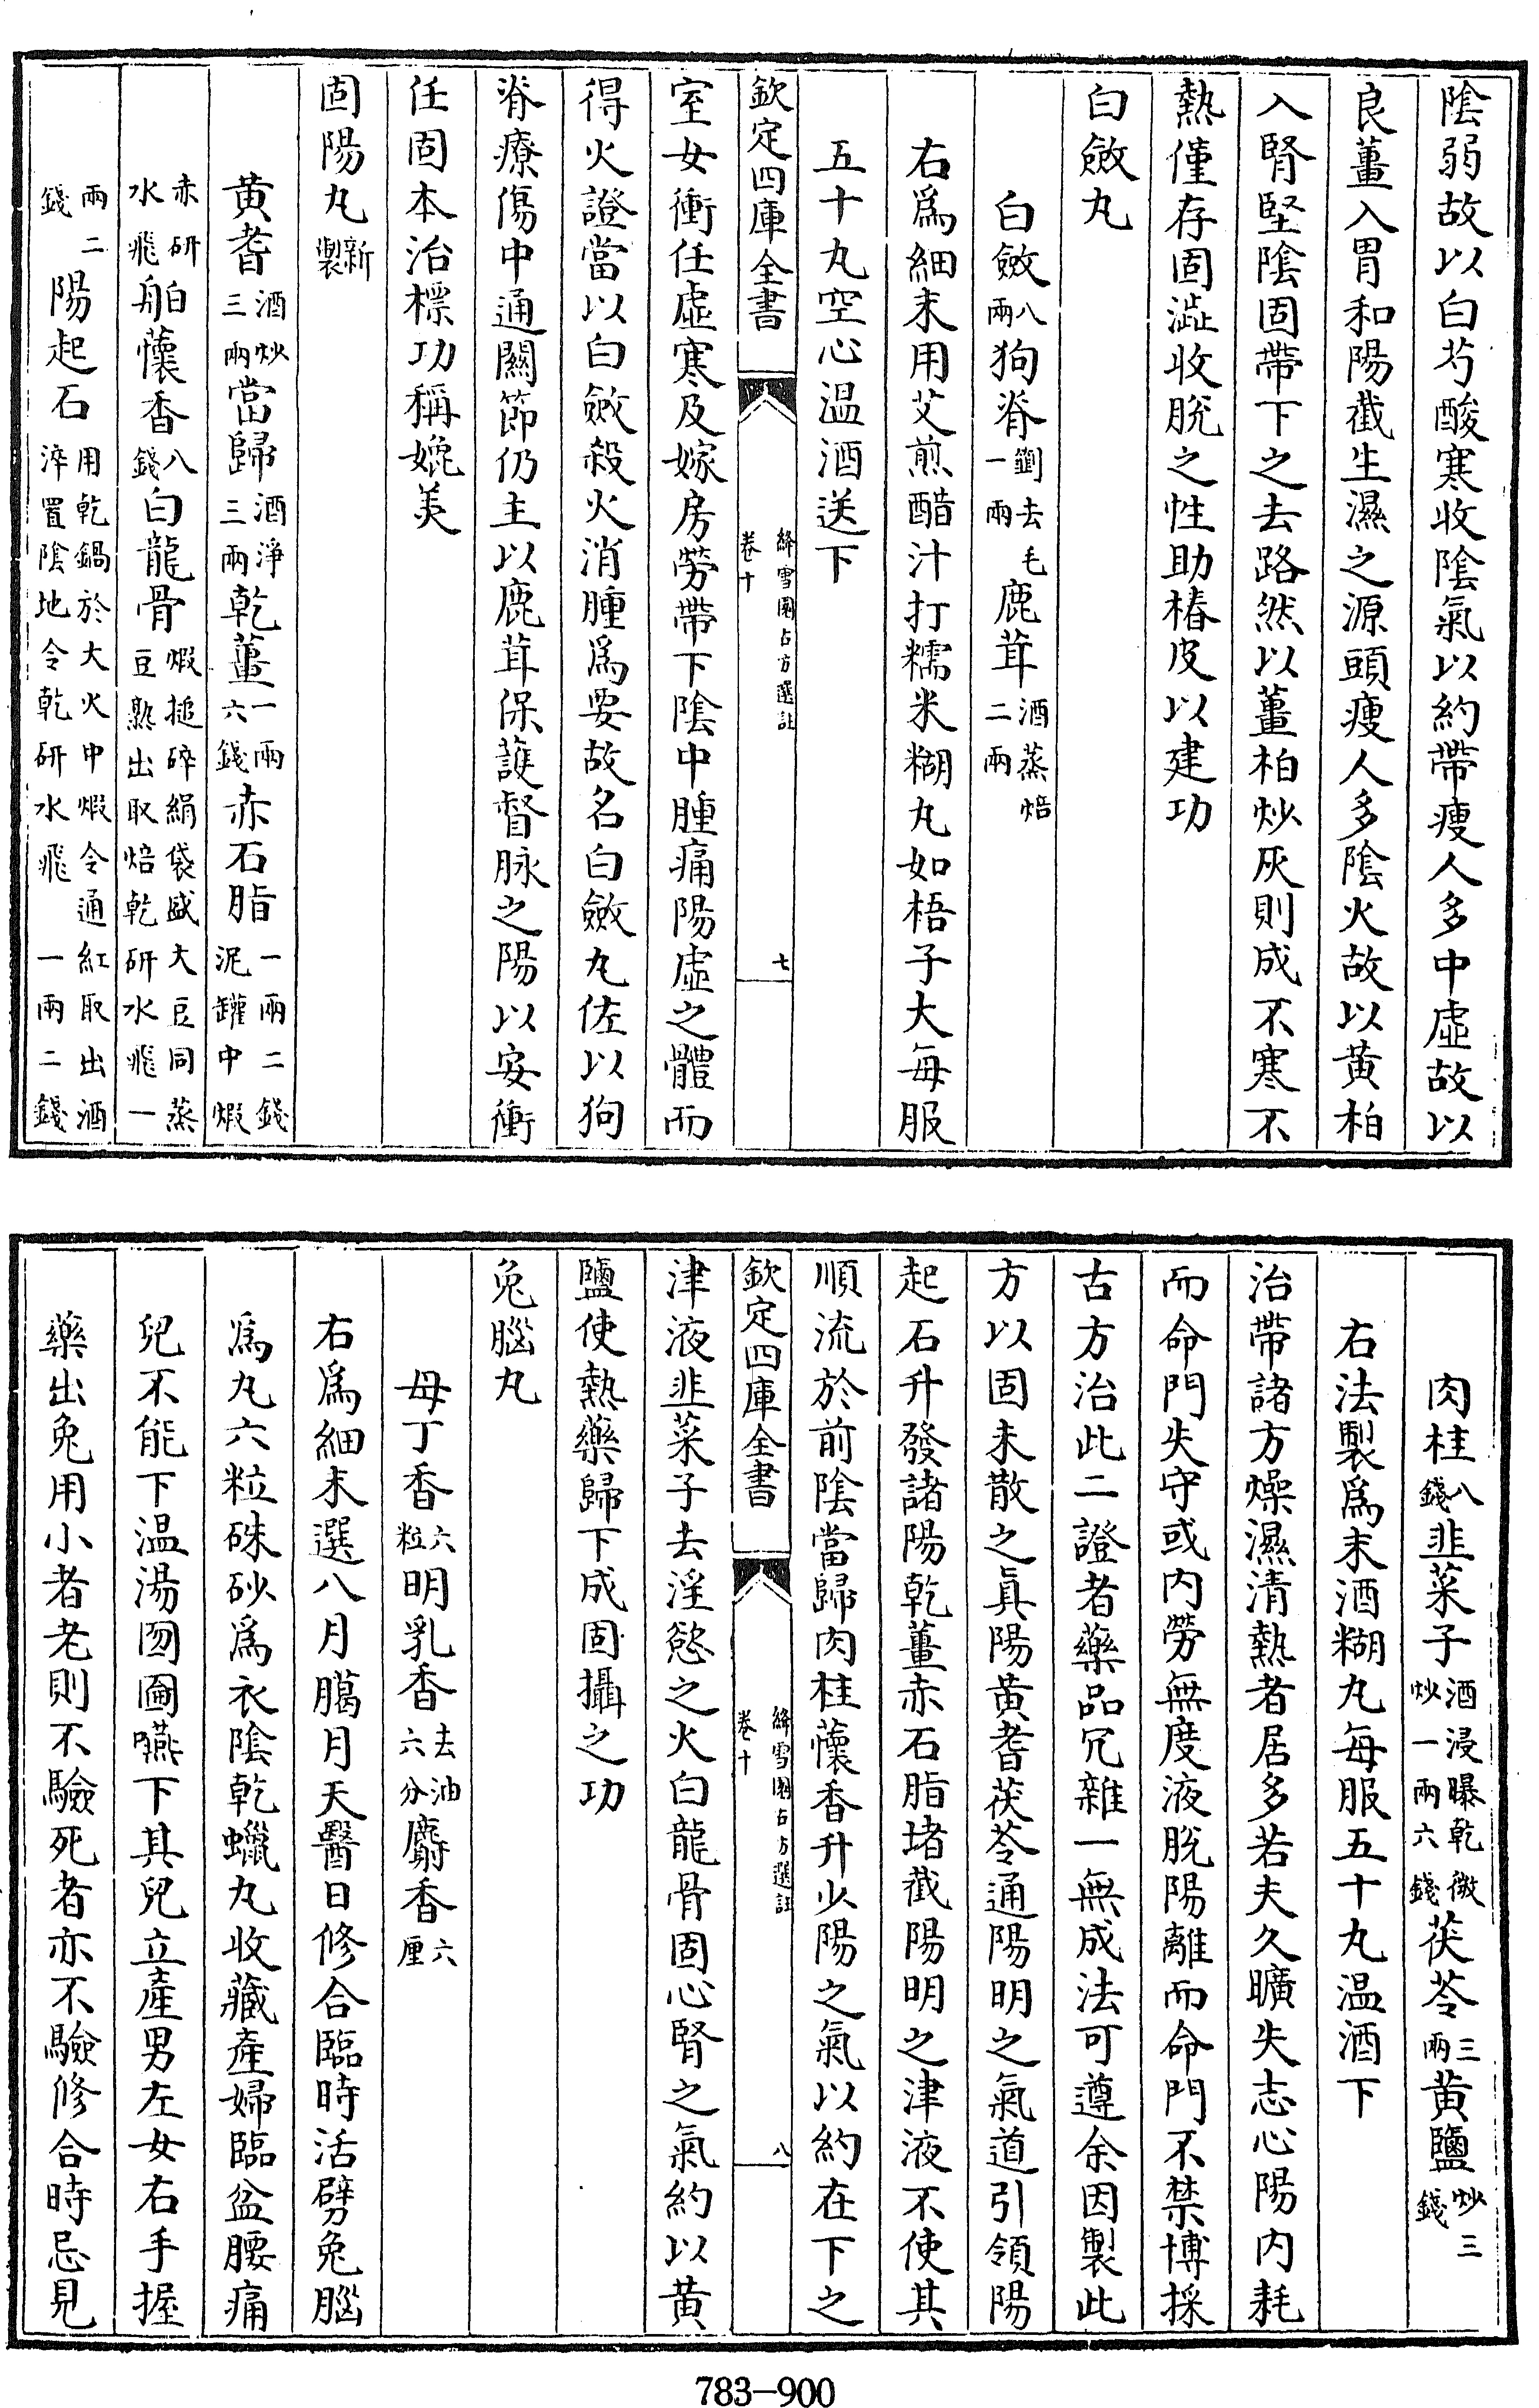 陰弱故以白芍酸寒收陰氣以約帶瘦人多中虛故以
良薑入胃和陽截生濕之源頭瘦人多陰火故以黄柏
入腎堅陰固帶下之去路然以薑柏炒灰則成不寒不
熱僅存固澁收脫之性助椿皮以建功
白斂丸
白斂八兩狗脊劉去毛一兩鹿茸酒蒸焙二兩
右爲細末用艾煎醋汁打糯米糊丸如梧子大每服
五十丸空心温酒送下
欽定四庫全書 絳雪園古方選註 卷十 七
室女衝任虛寒及嫁房勞帶下陰中腫痛陽虛之體而
得火證當以白斂殺火消腫爲要故名白斂丸佐以狗
脊療傷中通關節仍主以鹿茸保護督脉之陽以安衝
任固本治標功稱媲美
固陽丸新製
黄耆酒炒三兩當歸酒淨三兩乾薑一兩六錢赤石脂一兩二錢泥罐中煅
赤研水飛舶懷香八錢白龍骨煅搥碎絹袋盛大豆同蒸豆熟出取焙乾研水飛一
兩二錢陽起石用乾鍋於大火中煅令通紅取出酒淬置陰地令乾研水飛一兩二錢
肉桂八錢韭菜子酒浸曝乾微炒一兩六錢茯苓三兩黄鹽炒三錢
右法製爲末酒糊丸每服五十丸温酒下
治帶諸方燥濕清熱者居多若夫久曠失志心陽内耗
而命門失守或内勞無度液脫陽離而命門不禁博採
古方治此二證者藥品冗雜一無成法可遵余因製此
方以固未散之真陽黄耆茯苓通陽明之氣道引領陽
起石升發諸陽乾薑赤石脂堵截陽明之津液不使其
順流於前陰當歸肉桂蘹香升少陽之氣以約在下之
欽定四庫全書 絳雪園古方選註 卷十 八
津液韭菜子去淫慾之火白龍骨固心腎之氣約以黄
鹽使熱藥歸下成固攝之功
兔腦丸
母丁香六粒明乳香去油六分麝香六厘
右爲細末選八月臈月天醫日修合臨時活劈兔腦
爲丸六粒硃砂爲衣陰乾蠟丸收藏產婦臨盆腰痛
兒不能下温湯囫圇嚥下其兒立產男左女右手握
藥出兔用小者老則不驗死者亦不驗修合時忌見
783-900